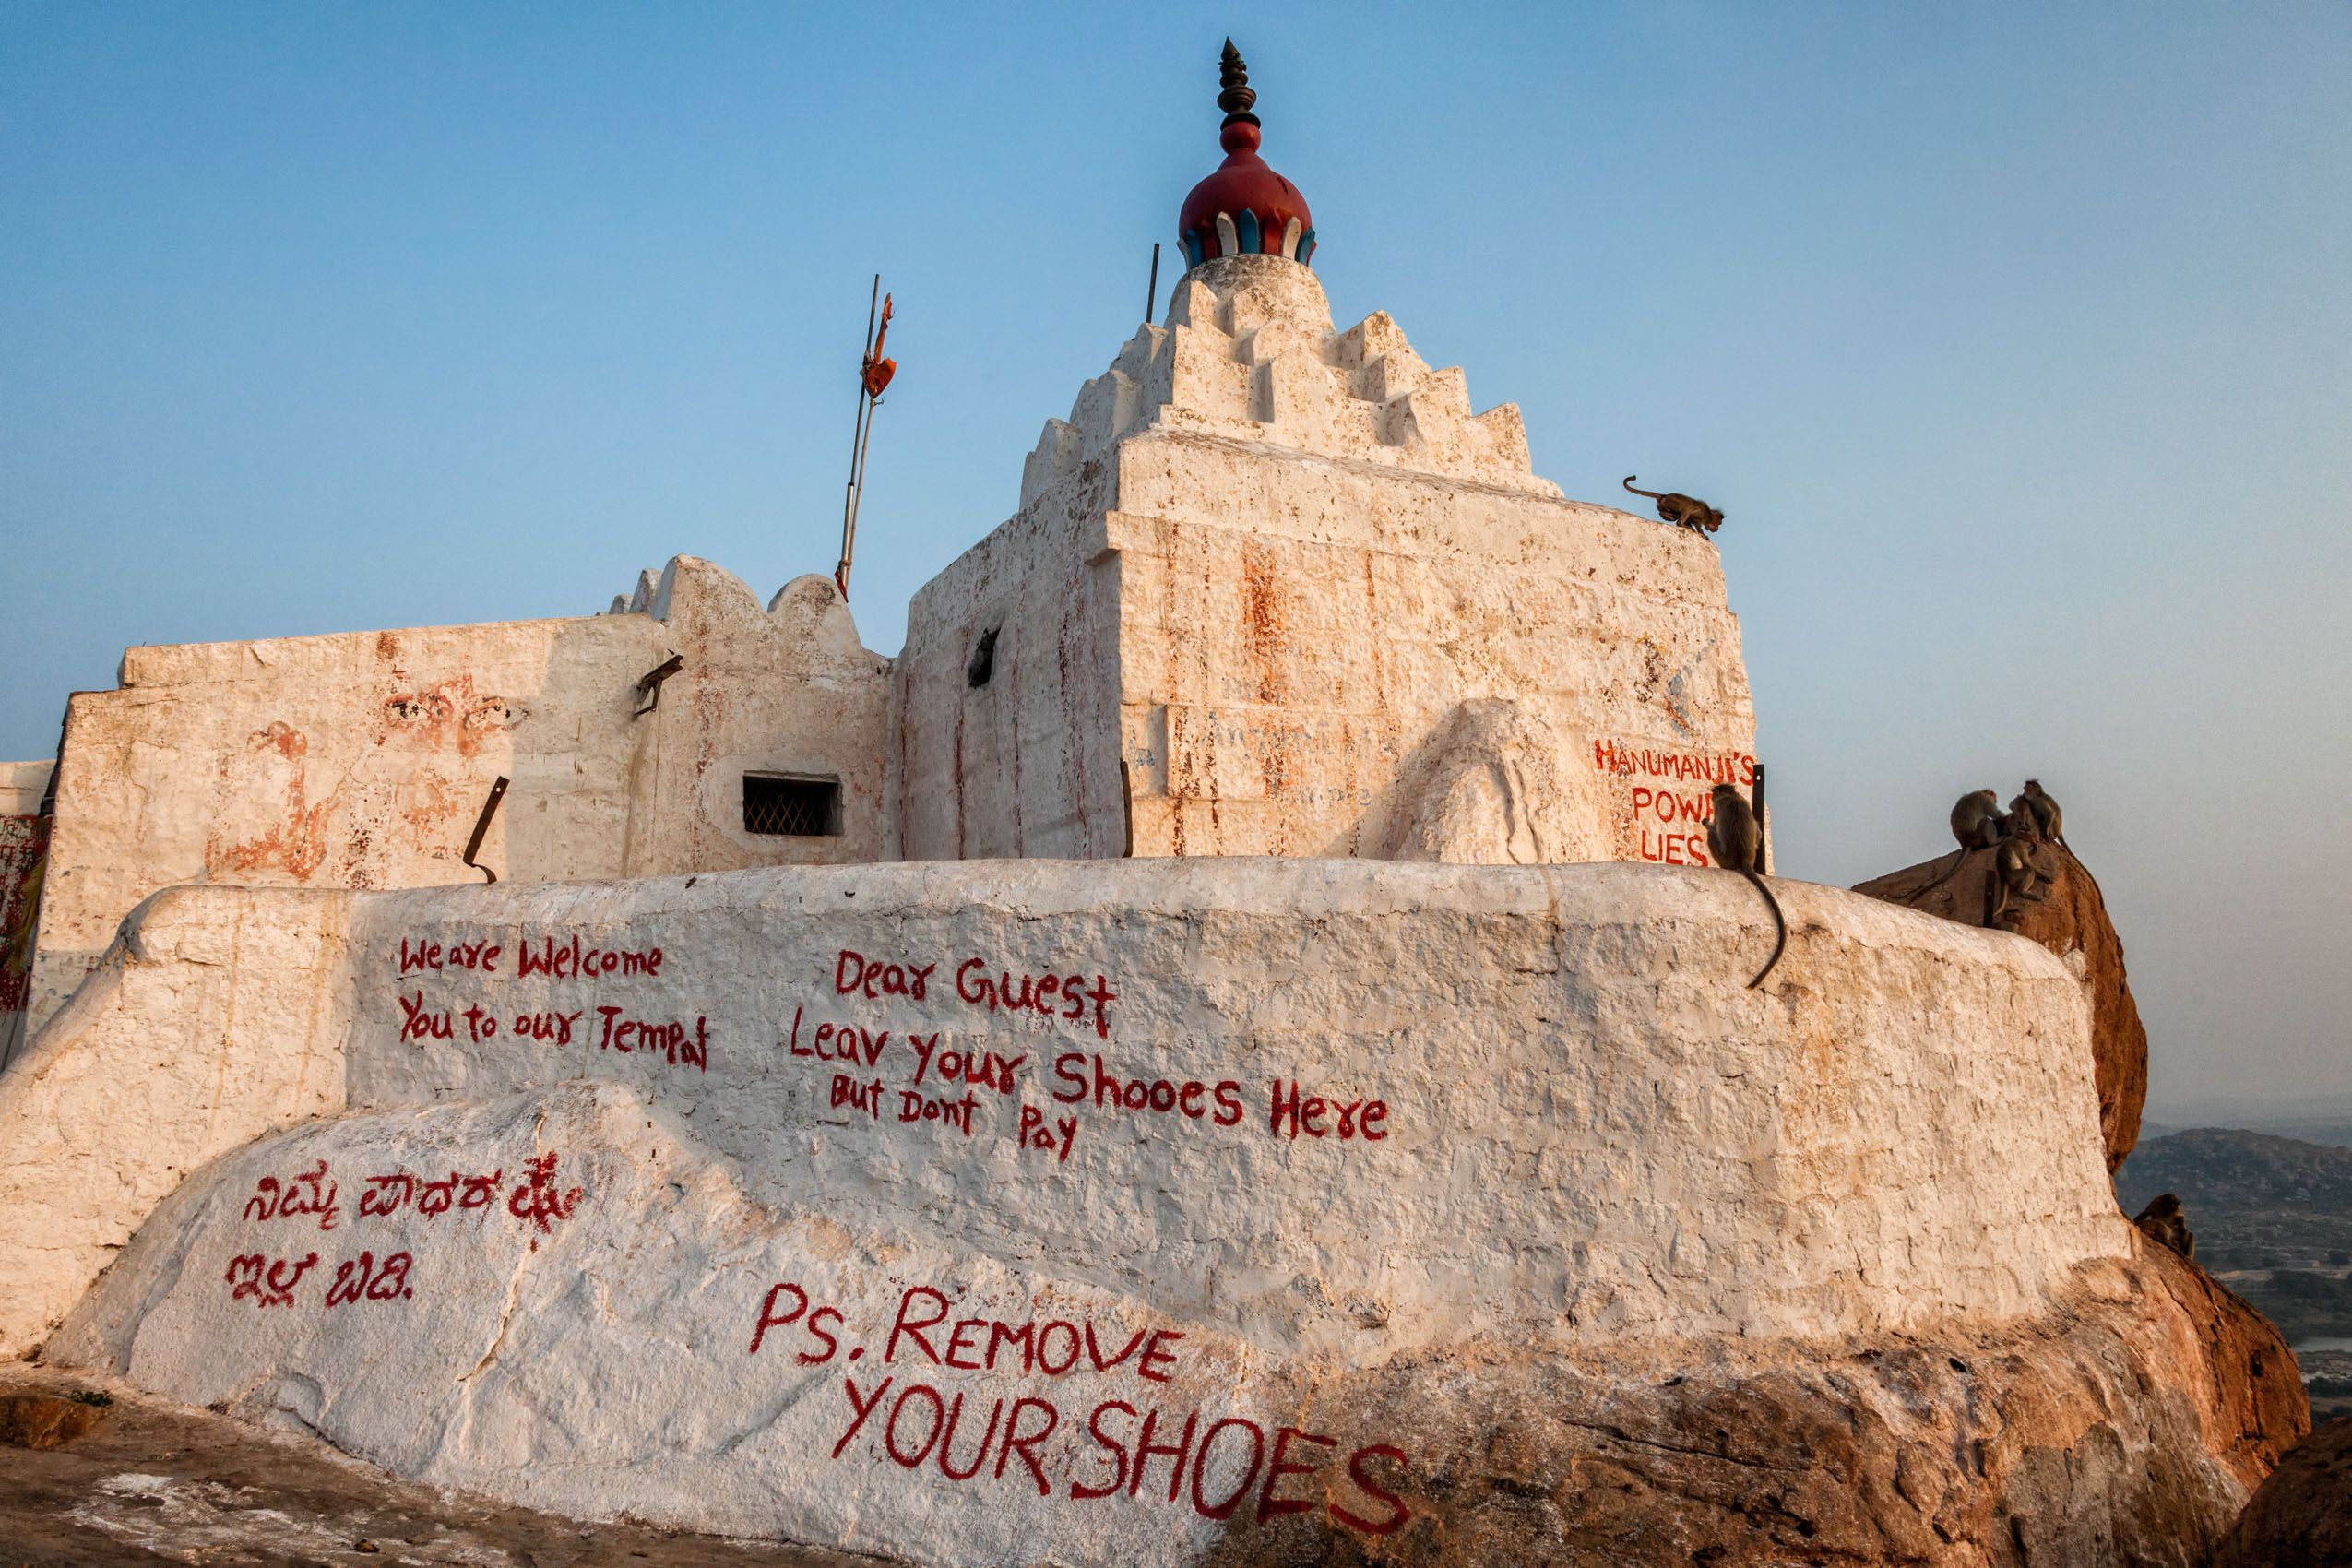 HANUMANJI'S
LIES
We are Welcome
You to our Tempat
Dear Guest
Leav Your Shooes Here
But Dont Pay
ನಿಮ್ಮ ಪಾಧರ
ಇಲ್ಲ ಬಿಡಿ.
Ps. REMOVE
YOUR SHOES